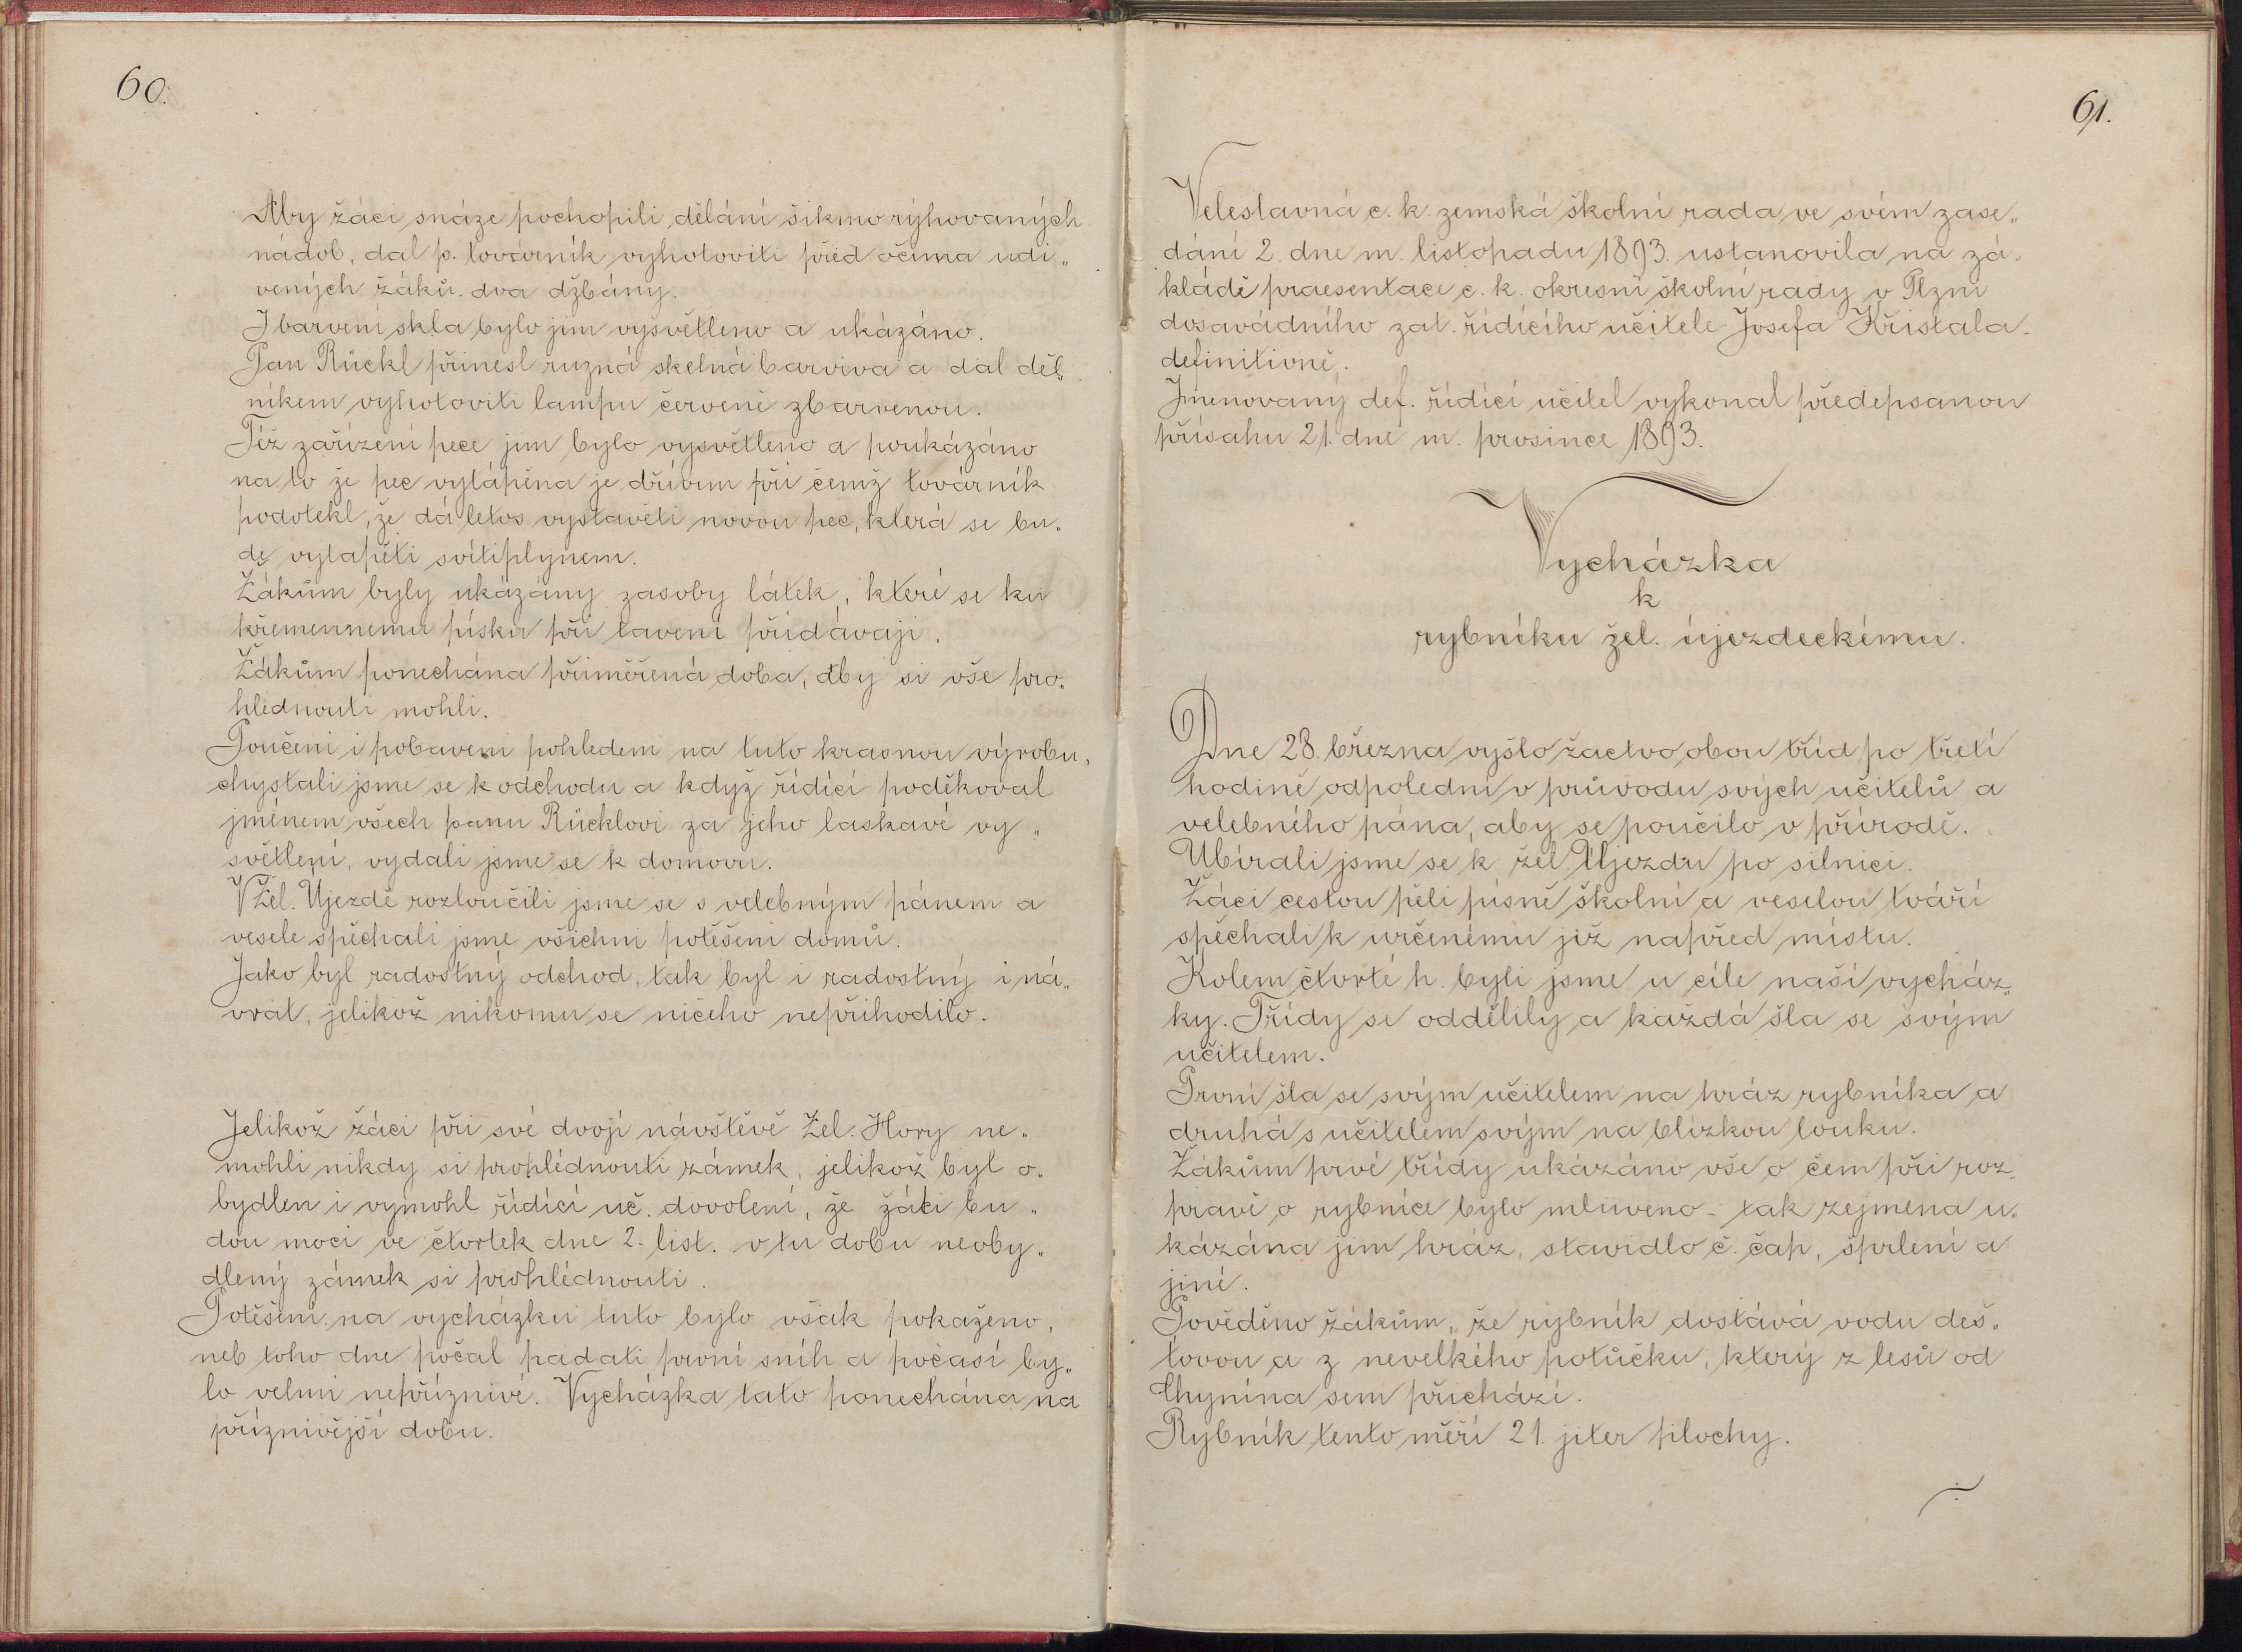 60.
Aby žáci snáze pochopili dělání šikmo rýhovaných
nádob, dal p. továrník vyhotoviti před očima udi„
vených žáků. dva džbány.
I barvení skla bylo jim vysvětleno a ukázáno.
Pan Rückl přinesl ruzná skelná barviva a dal děl„
níkem vyhotoviti lampu červeně zbarvenou.
Též zařízení pece jim bylo vysvětleno a poukázáno
na to že pec vytápěna je dřívím při čemž továrník
podotekl, že dá letos vystavěti novou pec, která se bu„
de vytapěti svítiplynem.
Žákům byly ukázány zasoby látek, které se ku
křemennemu písku při tavení přidávají.
Žákům ponechána přiměřená doba, aby si vše pro„
hlédnouti mohli.
Poučeni i pobaveni pohledem na tuto krasnou výrobu,
chystali jsme se k odchodu a když řídící poděkoval
jménem všech panu Rücklovi za jeho laskavé vy„
světlení, vydali jsme se k domovu.
V Žel. Újezdě rozloučili jsme se s velebným pánem a
vesele spěchali jsme všichni potěšeni domů.
Jako byl radostný odchod, tak byl i radostný i ná„
vrat, jelikož nikomu se ničeho nepřihodilo.
Jelikož žáci při své dvojí návštěvě Žel. Hory ne„
mohli nikdy si prohlédnouti zámek, jelikož byl o„
bydlen i vymohl řídící uč. dovolení, že žáci bu„
dou moci ve čtvrtek dne 2. list. v tu dobu neoby„
dlený zámek si prohlédnouti.
Potěšení na vycházku tuto bylo však pokaženo,
neb toho dne počal padati první sníh a počasí by„
lo velmi nepříznivé. Vycházka tato ponechána na
příznivější dobu.
61.
Veleslavná c. k. zemská školní rada ve svém zase„
dání 2. dne m. listopadu 1893. ustanovila na zá„
kládě praesentace c. k. okresní školní rady v Plzni
dosavádního zat. řídícího učitele Josefa Křistala
definitivně.
Jmenovaný def. řídící učitel vykonal předepsanou
přísahu 21. dne m. prosince 1893.
Vycházka
k
rybníku žel. újezdeckému.
Dne 28. března vyšlo žactvo obou tříd po třetí
hodině odpolední v průvodu svých učitelů a
velebného pána, aby se poučilo v přírodě.
Ubírali jsme se k žel. Újezdu po silnici.
Žáci cestou pěli písně školní a veselou tváří
spěchali k určenému již napřed místu.
Kolem čtvrté h. byli jsme u cíle naší vycház„
ky. Třídy se oddělily a každá šla se svým
učitelem.
První šla se svým učitelem na hráz rybníka a
druhá s učitelem svým na blízkou louku.
Žákům prvé třídy ukázáno vše o čem při roz„
pravě o rybníce bylo mluveno - tak zejmena u„
kázána jim hráz, stavidlo č. čap, šprlení a
jiné.
Pověděno žákům, že rybník dostává vodu deš„
ťovou a z nevelkého potůčku, který z lesů od
Chynína sem přichází.
Rybník tento měří 21. jiter plochy.